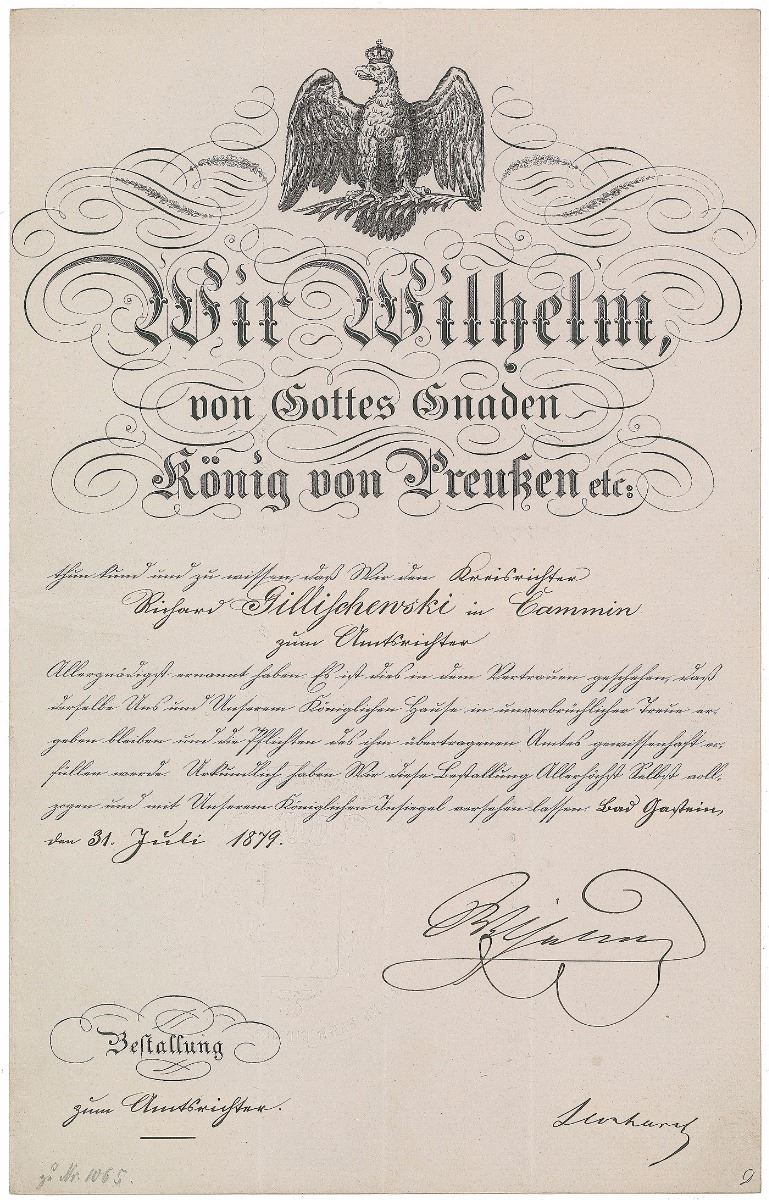 Wir Wilhelm,
von Gottes Gnaden
König von Preußen etc:
thun kund und zu wissen, daß Wir den Kreisrichter
Richard Gillischewski in Cammin
zum Amtsrichter
Allergnädigst ernannt haben. Es ist dies in dem Vertrauen geschehen, daß
derselbe Uns und Unserem Königlichen Hause in unverbrüchlicher Treue er-
geben bleiben und die Pflichten des ihm übertragenen Amtes gewissenhaft er-
füllen werde. Urkundlich haben Wir diese Bestallung Allerhöchst Selbst voll-
zogen und mit Unserem Königlichen Insiegel versehen lassen. Bad Gastein,
den 31. Juli 1879.
Wilhelm
Bestallung
zum Amtsrichter.
Leonhardt
zu Nr. 1065.